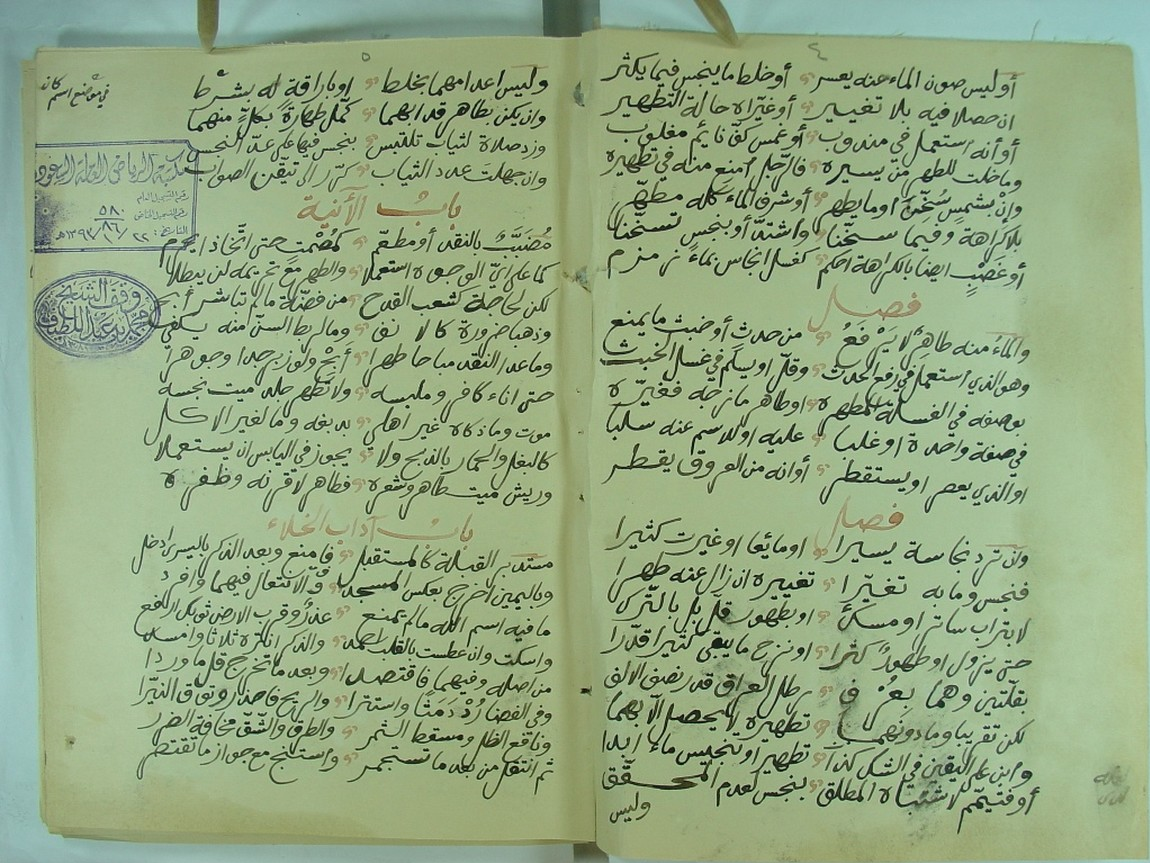 ٤
أوليس صون الماء عنه يعسر أو خلط ما ينجس فيما يكثر
ان حصلا فيه بلا تغيير أو غيراه حالة التطهير
أو أنه استعمل في مندوب أو غمس كف نائم مغلوب
وما خلت للطهر من يسيره فالرجل امنع منه في تطهيره
وإن بشمس سخن أو ما يطهر أو شرف الماء كله مطهر
بلا كراهة وفيما سخنا واشتد أو بنجس تسخنا
أو غصب ايضا بالكراهة احكم كغسل انجاس بماء زمزم
فصل
والماء منه طاهر لا يرفع من حدث أو خبث ما يمنع
وهو الذي استعمل في رفع الحدث وقل او يسلم في غسل الخبث
بوصفه في الغسلة المطهره او طاهر مازجه فغيره
في صفة واحدة او غلبا عليه او للاسم عنه سلبا
او الذي يعصر او يستقطر أو انه من العروق يقطر
فصل
وان ترد نجاسة يسيرا او مائعا او غيرت كثيرا
فنجس وما به تغيرا تغييره ان زال عنه طهرا
لا بتراب ساتر او مسك او بطهور قل بل بالترك
حتى يزول او طهور كثرا او نزح ما يبقى كثيرا قدرا
بقلتين وهما بعرف رطل العراق قدر نصف الالف
لكن تقريبا وما دونهما تطهيره لا يحصل الا بهما
وابن على اليقين في الشك كذا تطهيرا او تنجيس ماء ابدا
أو فتيمم لاشتباه المطلق بنجس كعدم المحقق
وليس
٥
وليس اعدامهما بخلط او باراقة له بشرط
وان يكن بطاهر قد ابهما كمل طهارة بكل منهما
وزد صلاة لثياب تلتبس بنجس فيها على عد النجس
وان جهلت عدد الثياب كرر الى تيقن الصواب
باب الآنية
مضبب بالنقد أو مطعم كمصمت حتى اتخاذا يحرم
كما على انثى الوجوه استعملا والطهر مع تحريمه لن يبطلا
لكن لحاجة كشعب القدح من فضة ما لم تباشر أبح
وذهبا ضرورة كالانف وما لربط السن منه يكفي
وما عدا النقد مباحا طهرا أبح ولو زبرجدا وجوهرا
حتى اناء كافر وملبسه ولا تطهر جلد ميت نجسه
موت وما ذكاة غير اهلي بدبغه وما لغير الاكل
كالبغل والحمار بالذبح ولا يجوز في اليابس ان يستعملا
وريش ميت طاهر وشعره فطاهر لا قرنه وظفره
باب آداب الخلاء
مستدبر القبلة كالمستقبل فامنع وبعد الذكر باليسرى ادخل
وباليمين اخرج بعكس المسجد والانتعال فيهما وافرد
ما فيه اسم الله ما لم يمنع عذر وقرب الارض ثوبك ارفع
واسكت وان عطست بالقلب احمد والذكر انتره ثلاثا وامسد
من اصله وفيهما فاقتصدا وبعد ما تخرج قل ما وردا
وفي الفضا رد دمثا واستترا والريح فاحذر وتوق النيرا
وناقع الظل ومسقط الثمر والطرق والشق مخافة الضرر
ثم انتقل من بعد ما تستجمر واستنج مع جواز ما تقتصر
في موضع اسم كان
مكتبة الرياض العامة السعودية
رقم التسجيل العام
رقم التسجيل الخاص ٥٨٠ / ٨٦
التاريخ: ٢٢ / ١ / ١٣٩٣ هـ
وقف الشيخ
محمد بن عبد اللطيف